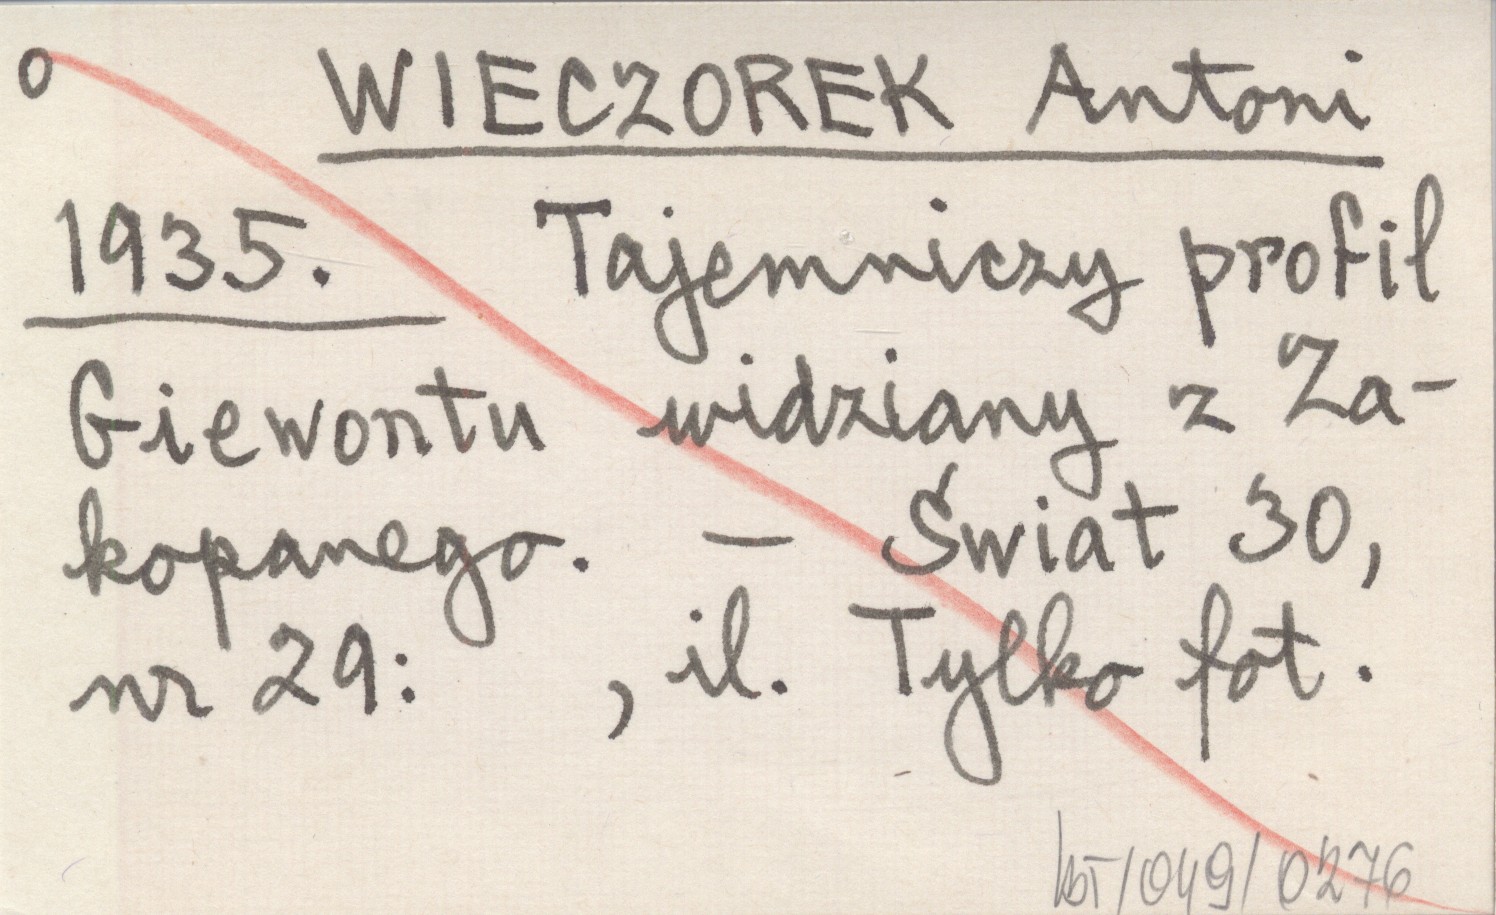 o WIECZOREK Antoni
1935. Tajemniczy profil
Giewontu widziany z Za-
kopanego. – Świat 30,
nr 29: , il. Tylko fot.
kbT/049/0276